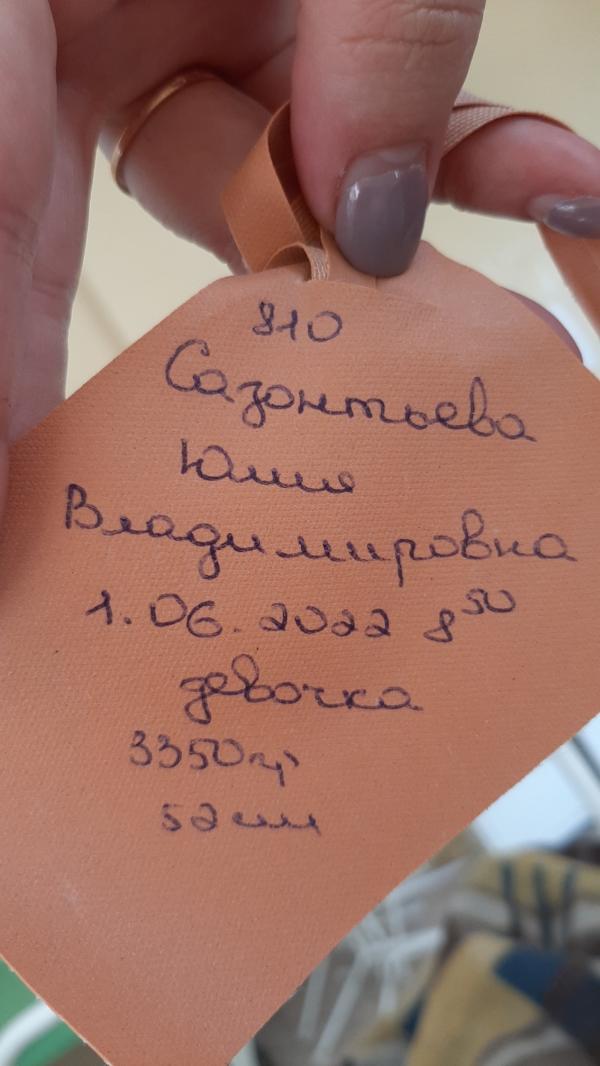 810
Сазонтьева
Юлия
Владимировна
1.06.2022 8⁵⁰
девочка
3350гр
52см